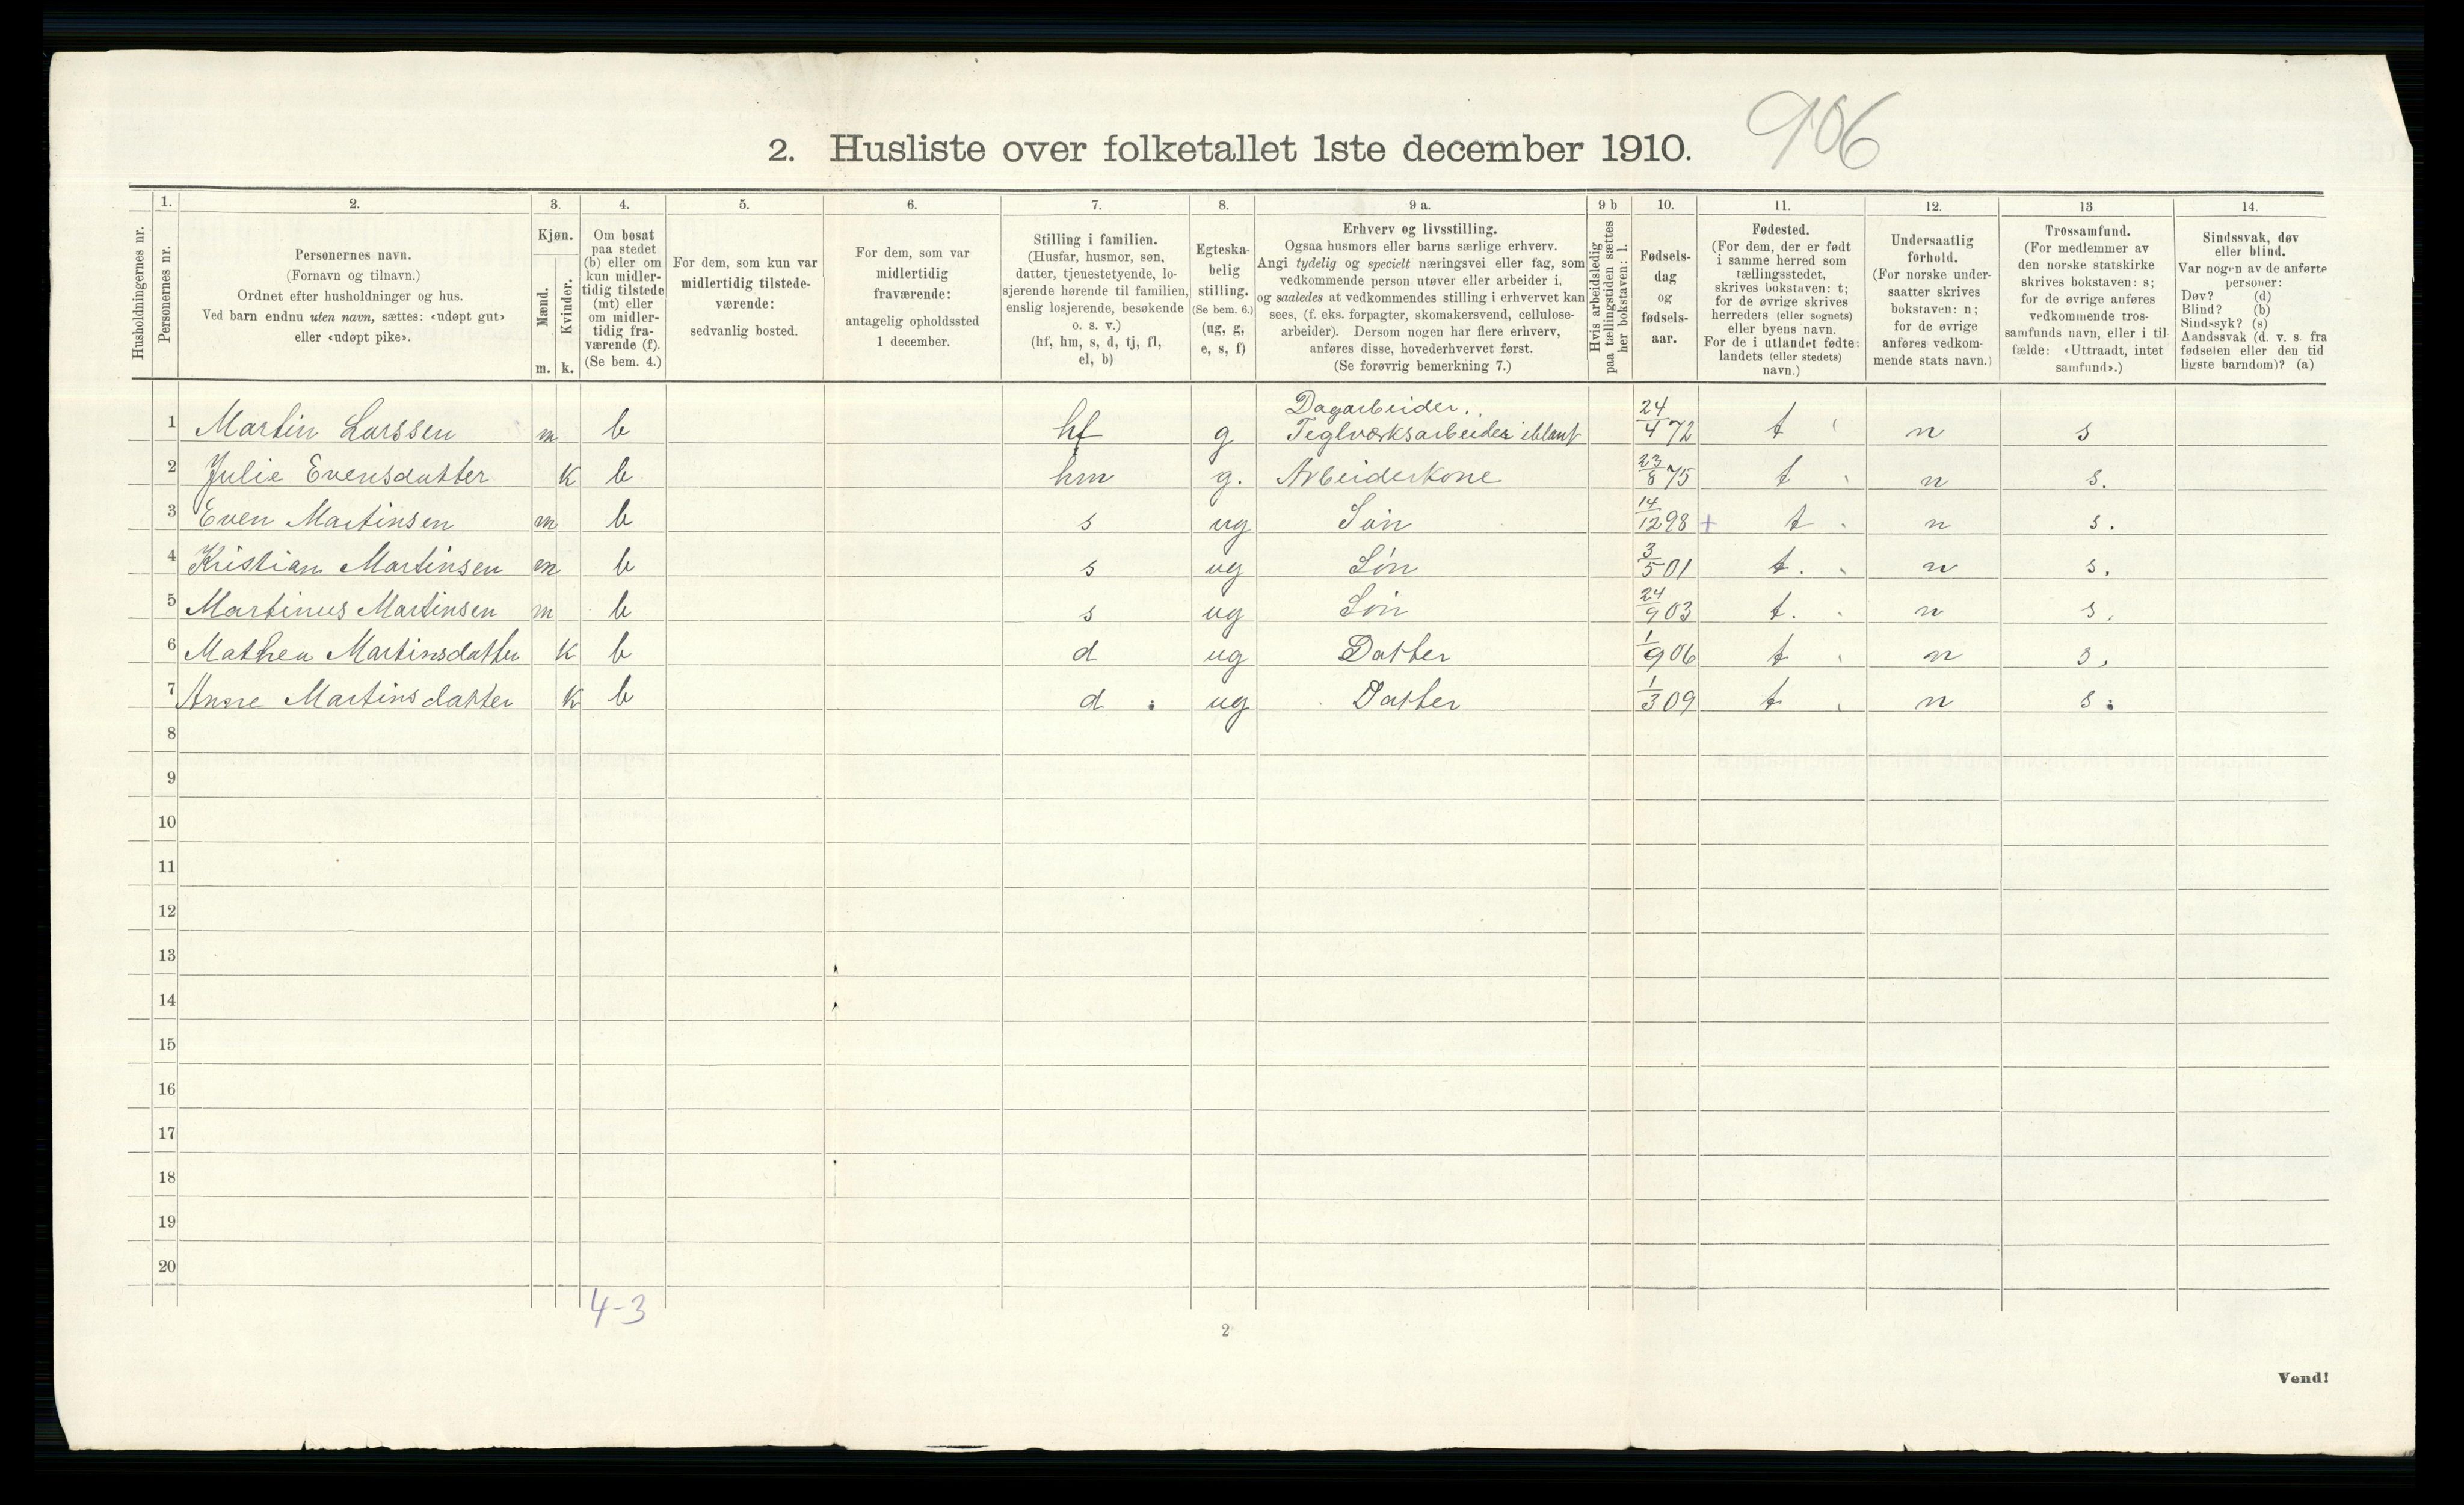 906
2. Husliste over folketallet 1ste december 1910.
Husholdningernes nr.
1.
Personernes nr.
2.
Personernes navn.
(Fornavn og tilnavn.)
Ordnet efter husholdninger og hus.
Ved barn endnu uten navn, sættes: «udøpt gut»
eller «udøpt pike».
3.
Kjøn.
Mænd.
Kvinder.
m. k.
4.
Om bosat
paa stedet
(b) eller om
kun midler-
tidig tilstede
(mt) eller
om midler-
tidig fra-
værende (f).
(Se bem. 4.)
5.
For dem, som kun var
midlertidig tilstede-
værende:
sedvanlig bosted.
6.
For dem, som var
midlertidig
fraværende:
antagelig opholdssted
1 december.
7.
Stilling i familien.
(Husfar, husmor, søn,
datter, tjenestetyende, lo-
sjerende hørende til familien,
enslig losjerende, besøkende
o. s. v.)
(hf, hm, s, d, tj, fl,
el, b)
8.
Egteska-
belig
stilling.
(Se bem. 6.)
(ug, g,
e, s, f)
9 a.
Erhverv og livsstilling.
Ogsaa husmors eller barns særlige erhverv.
Angi tydelig og specielt næringsvei eller fag, som
vedkommende person utøver eller arbeider i,
og saaledes at vedkommendes stilling i erhvervet kan
sees, (f. eks. forpagter, skomakersvend, cellulose-
arbeider). Dersom nogen har flere erhverv,
anføres disse, hovederhvervet først.
(Se forøvrig bemerkning 7.)
9 b
Hvis arbeidsledig
paa tællingstiden sættes
her bokstaven: l.
10.
Fødsels-
dag
og
fødsels-
aar.
11.
Fødested.
(For dem, der er født
i samme herred som
tællingsstedet,
skrives bokstaven: t;
for de øvrige skrives
herredets (eller sognets)
eller byens navn.
For de i utlandet fødte:
landets (eller stedets)
navn.)
12.
Undersaatlig
forhold.
(For norske under-
saatter skrives
bokstaven: n;
for de øvrige
anføres vedkom-
mende stats navn.)
13
Trossamfund.
(For medlemmer av
den norske statskirke
skrives bokstaven: s;
for de øvrige anføres
vedkommende tros-
samfunds navn, eller i til-
fælde: «Uttraadt, intet
samfund».)
14.
Sindssvak, døv
eller blind.
Var nogen av de anførte
personer:
Døv? (d)
Blind? (b)
Sindssyk? (s)
Aandssvak (d. v. s. fra
fødselen eller den tid
ligste barndom)? (a)
Dagarbeider.
1 Martin Larssen m b hf g Teglværksarbeider iblant 24/4 72 t n s
2 Julie Evensdatter k b hm g. Arbeiderkone 23/8 75 t n s.
3 Even Martinsen m b s ug Søn 14/12 98 + t n s.
4 Kristian Martinsen m b s ug Søn 3/5 01 t. n s.
5 Martinus Martinsen m b s ug Søn 24/9 03 t. n s.
6 Mathea Martinsdatter k b d ug Datter 1/9 06 t n s.
7 Anne Martinsdatter k b d. ug Datter 1/3 09 t n s.
8
9
10
11
12
13
14
15
16
17
18
19
20
4-3
2
Vend!